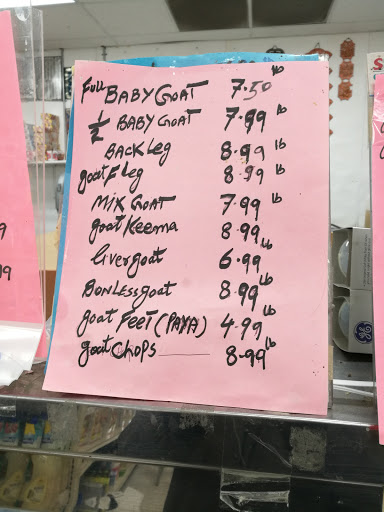 Full BABY GOAT 7.50 lb
1/2 BABY GOAT 7.99 lb
BACK Leg 8.99 lb
goat F leg 8.99 lb
MIX GOAT 7.99 lb
goat Keema 8.99
liver goat 6.99 lb
BONLESS goat 8.99 lb
goat FEET (PAYA) 4.99 lb
goat CHOPS 8.99 lb